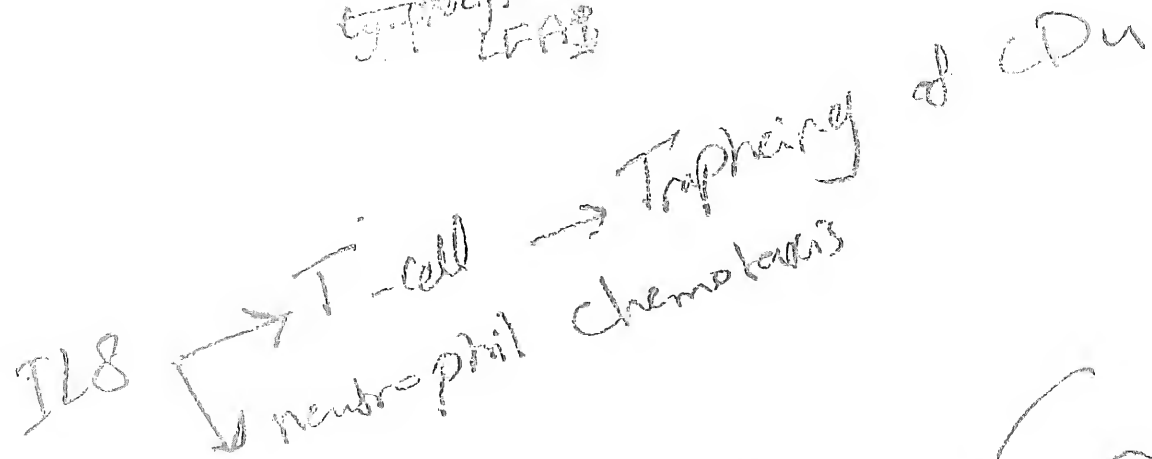 LFA
IL8 → T-cell → Trapheing of CD4
↓ neutrophil chemotaxis